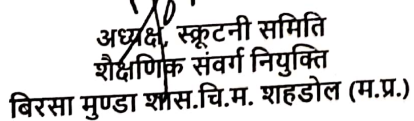 अध्यक्ष, स्क्रूटनी समिति
शैक्षणिक संवर्ग नियुक्ति
बिरसा मुण्डा शास.चि.म. शहडोल (म.प्र.)